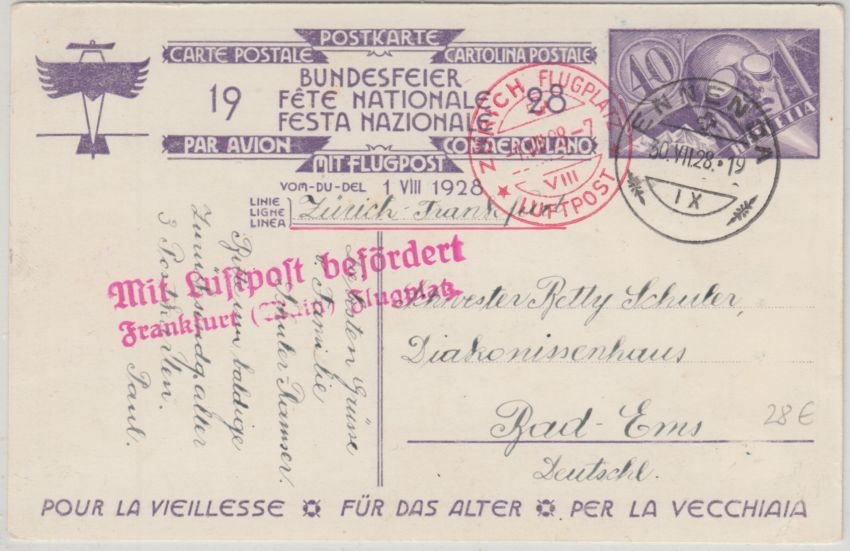 POSTKARTE
CARTE POSTALE CARTOLINA POSTALE
19 BUNDESFEIER 28
FÊTE NATIONALE
FESTA NAZIONALE
PAR AVION CON AEROPLANO
MIT FLUGPOST
VOM-DU-DEL 1 VIII 1928
LINIE
LIGNE
LINEA
Zürich-Frankfurt
40
HELVETIA
ZÜRICH FLUGPLATZ
VIII
LUFTPOST
ENNENDA
30.VII.28.-19
IX
Mit Luftpost befördert
Frankfurt (Main) Flugplatz
Schwester Betty Schuler,
Diakonissenhaus
Bad-Ems
Deutschl.
28 €
Herzlichsten Grüsse
v. Familie
Schuler-Ramser.
Bitte um baldige
Zurücksendg. aller
3 Postkarten.
Paul.
POUR LA VIEILLESSE FÜR DAS ALTER PER LA VECCHIAIA